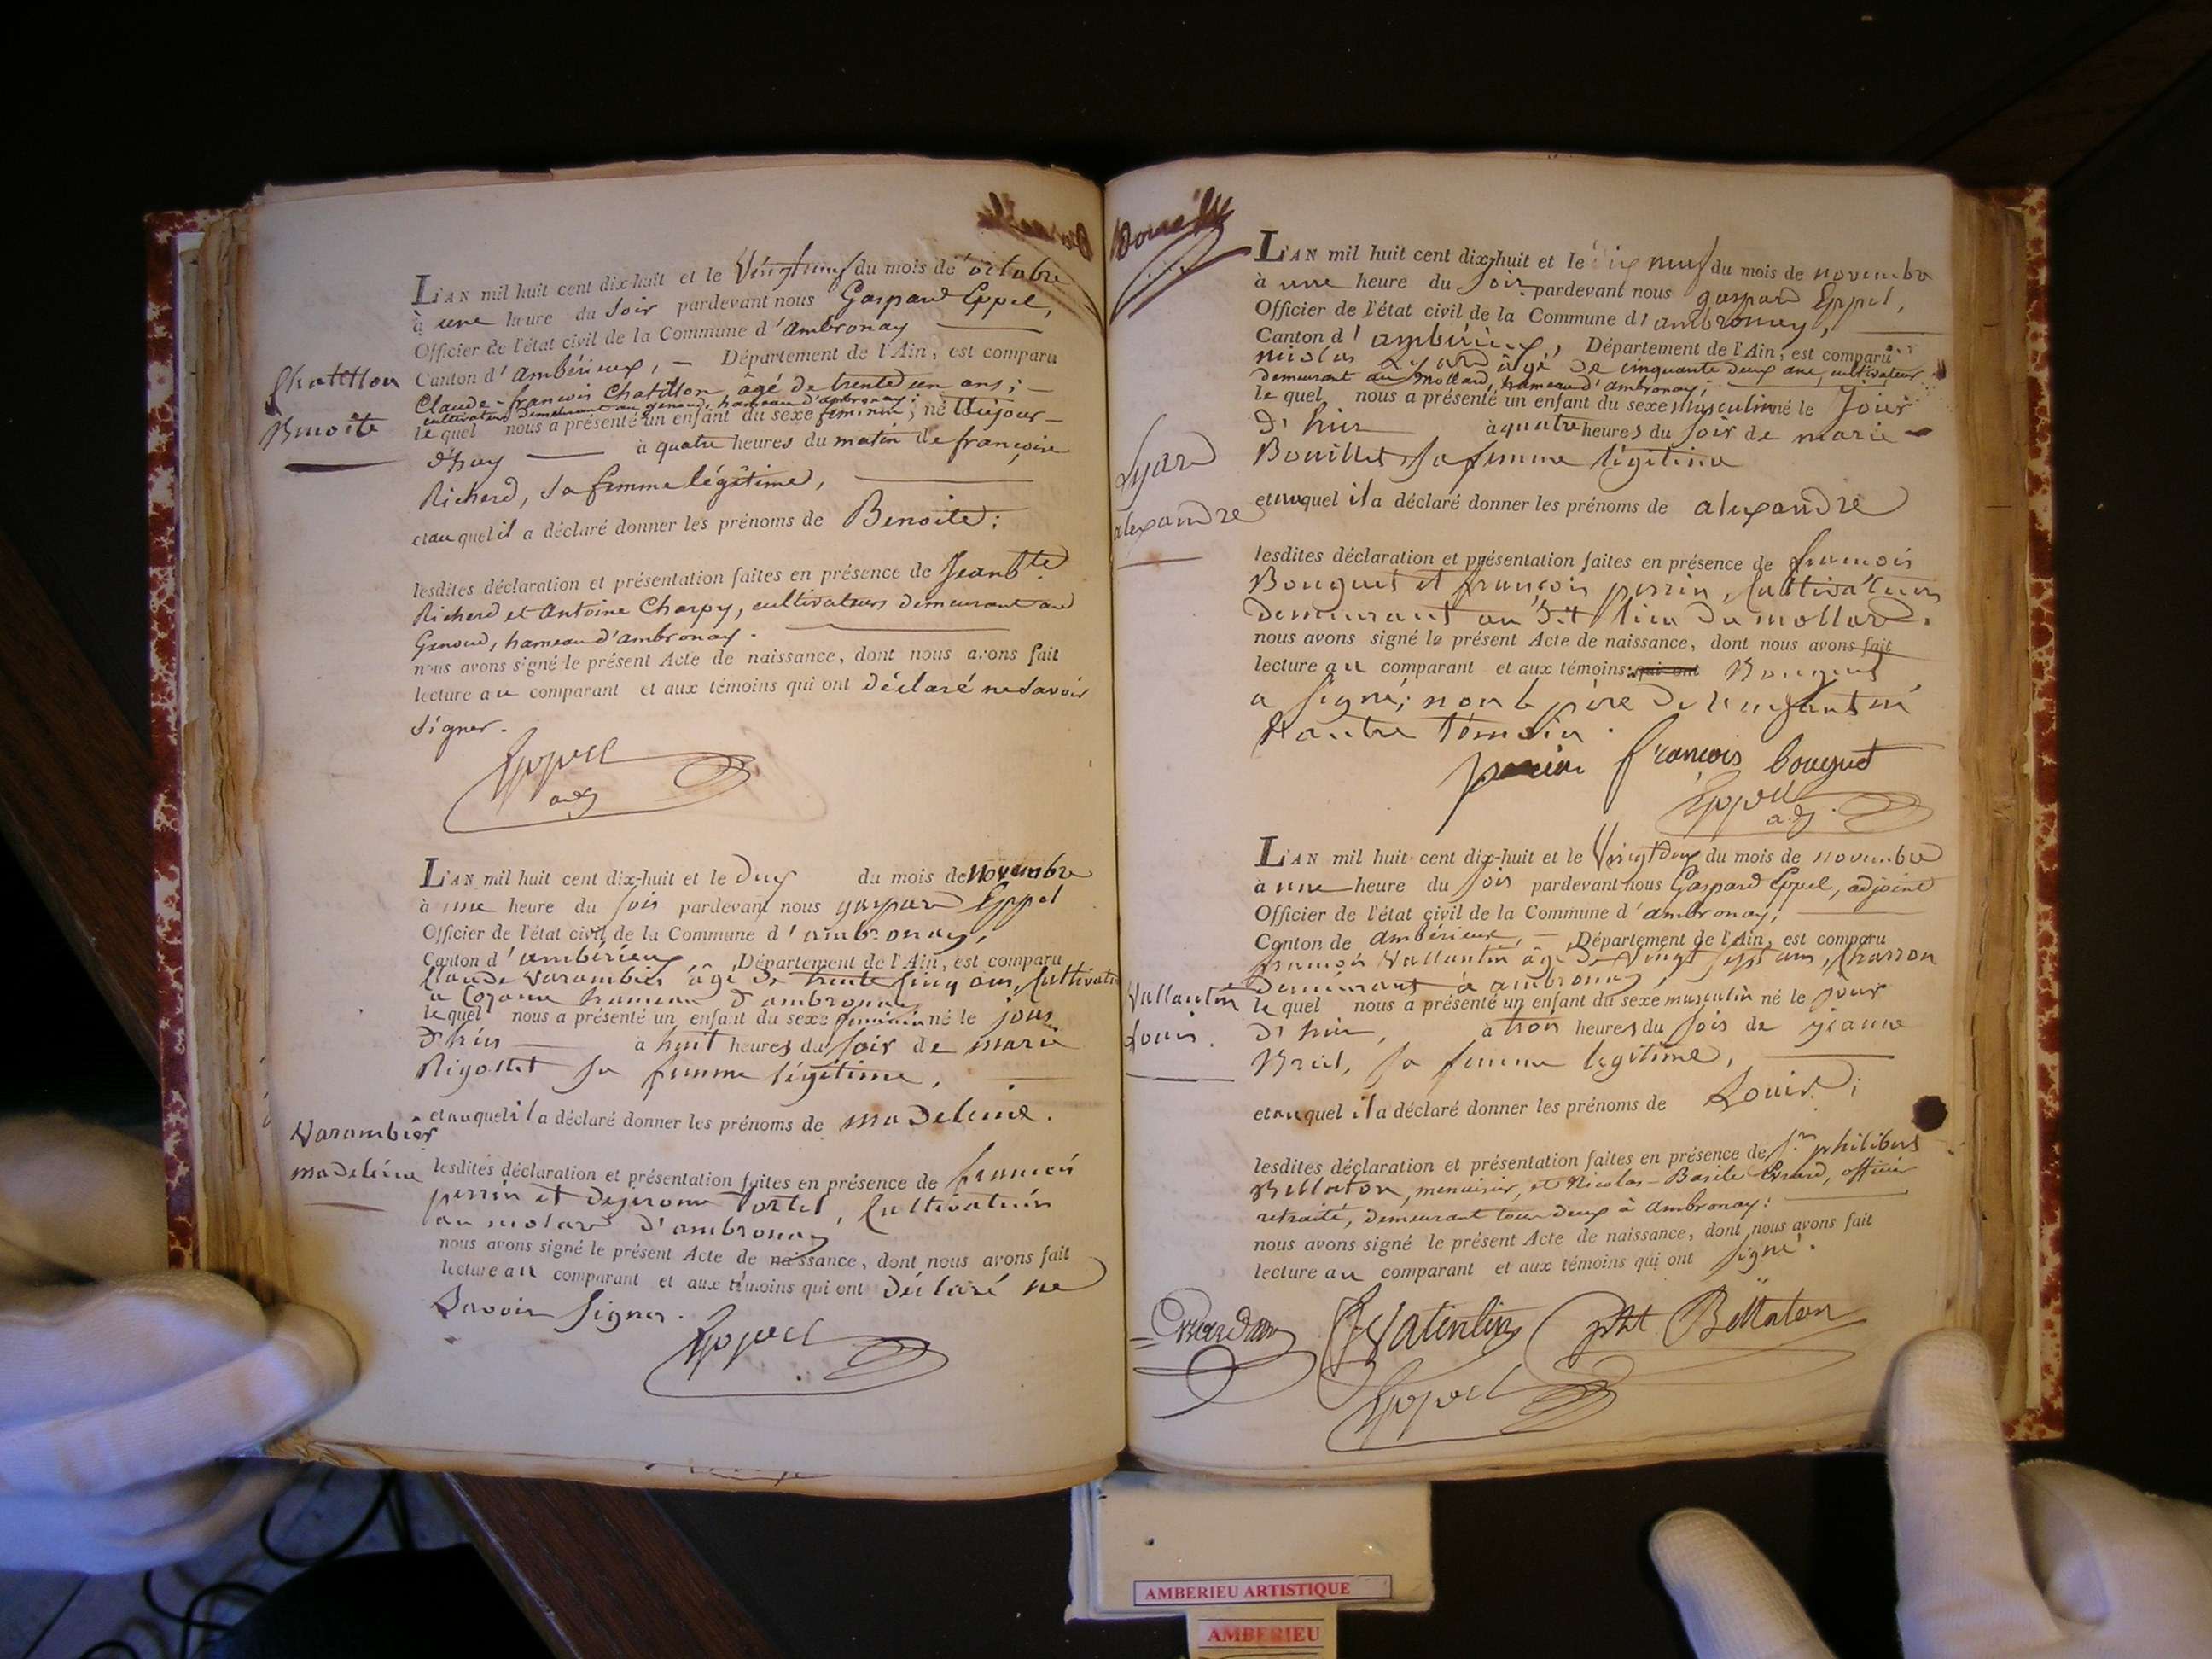 L'AN mil huit cent dix-huit et le Vingt neuf du mois de octobre
à une heure du soir pardevant nous Gaspard Eppel,
Officier de l'état civil de la Commune d'ambronay
Canton d'ambérieux, Département de l'Ain, est comparu
Claude-francois Chatillon âgé de trente un ans;
cultivateur demeurant au genoud, hameau d'ambronay;
Chatillon
Benoite
le quel nous a présenté un enfant du sexe feminin; né
d'huy à quatre heures du matin de françoise
Richerd, sa femme légitime,
et au quel il a déclaré donner les prénoms de Benoite;
lesdites déclaration et présentation faites en présence de Jean Bte
Richerd et Antoine Charpy, cultivateurs demeurant au
Genoud, hameau d'ambronay.
nous avons signé le présent Acte de naissance, dont nous avons fait
lecture au comparant et aux témoins qui ont déclaré ne savoir
signer.
Eppel
adj
L'AN mil huit cent dix-huit et le dix du mois de novembre
à une heure du soir pardevant nous gaspard Eppel
Officier de l'état civil de la Commune d'ambronay,
Canton d'ambérieux Département de l'Ain, est comparu
Claude Varambier âgé de trente cinq ans, Cultivateur
a hameau d'ambronay
le quel nous a présenté un enfant du sexe feminin né le jour
d'hier à huit heures du soir de marie
Rigollet sa femme légitime,
et auquel il a déclaré donner les prénoms de madeleine.
Varambier
madeleine
lesdites déclaration et présentation faites en présence de francois
perrin et Tortel, Cultivateurs
au molard d'ambronay
nous avons signé le présent Acte de naissance, dont nous avons fait
lecture au comparant et aux témoins qui ont déclaré ne
Savoir signer.
Eppel
L'AN mil huit cent dix-huit et le dix neuf du mois de novembre
à une heure du soir pardevant nous gaspard Eppel,
Officier de l'état civil de la Commune d'ambronay,
Canton d'ambérieux, Département de l'Ain, est comparu
nicolas Lyard âgé de cinquante deux ans, cultivateur
demeurant au Mollard, hameau d'ambronay;
le quel nous a présenté un enfant du sexe Masculin né le Jour
d'hier à quatre heures du soir de marie
Bouillet, sa femme légitime
Lyard
alexandre
et auquel il a déclaré donner les prénoms de alexandre
lesdites déclaration et présentation faites en présence de francois
Bouquet et françois perrin, Cultivateurs
demeurant au dit lieu du mollard.
nous avons signé le présent Acte de naissance, dont nous avons fait
lecture au comparant et aux témoins: qui ont Bouquet
a signé; non le père de l'enfant ni
l'autre témoin.
françois bouquet
Eppel
adj.
L'AN mil huit cent dix-huit et le Vingt deux du mois de novembre
à une heure du soir pardevant nous Gaspard Eppel, adjoint
Officier de l'état civil de la Commune d'ambronay;
Canton de ambérieux, Département de l'Ain, est comparu
francois Vallantin âgé de vingt sept ans, Charron
demeurant à ambronay,
Vallantin
Louis.
le quel nous a présenté un enfant du sexe masculin né le jour
d'hier, à trois heures du soir de jeanne
sa femme légitime,
et auquel il a déclaré donner les prénoms de Louis;
lesdites déclaration et présentation faites en présence de Sr. philibert
Bellaton, menuisier, et Nicolas-Basile Evrard, officier
retraité, demeurant tous deux à ambronay:
nous avons signé le présent Acte de naissance, dont nous avons fait
lecture au comparant et aux témoins qui ont signé.
Vatintin pht Bellaton
Eppel
AMBERIEU ARTISTIQUE
AMBERIEU